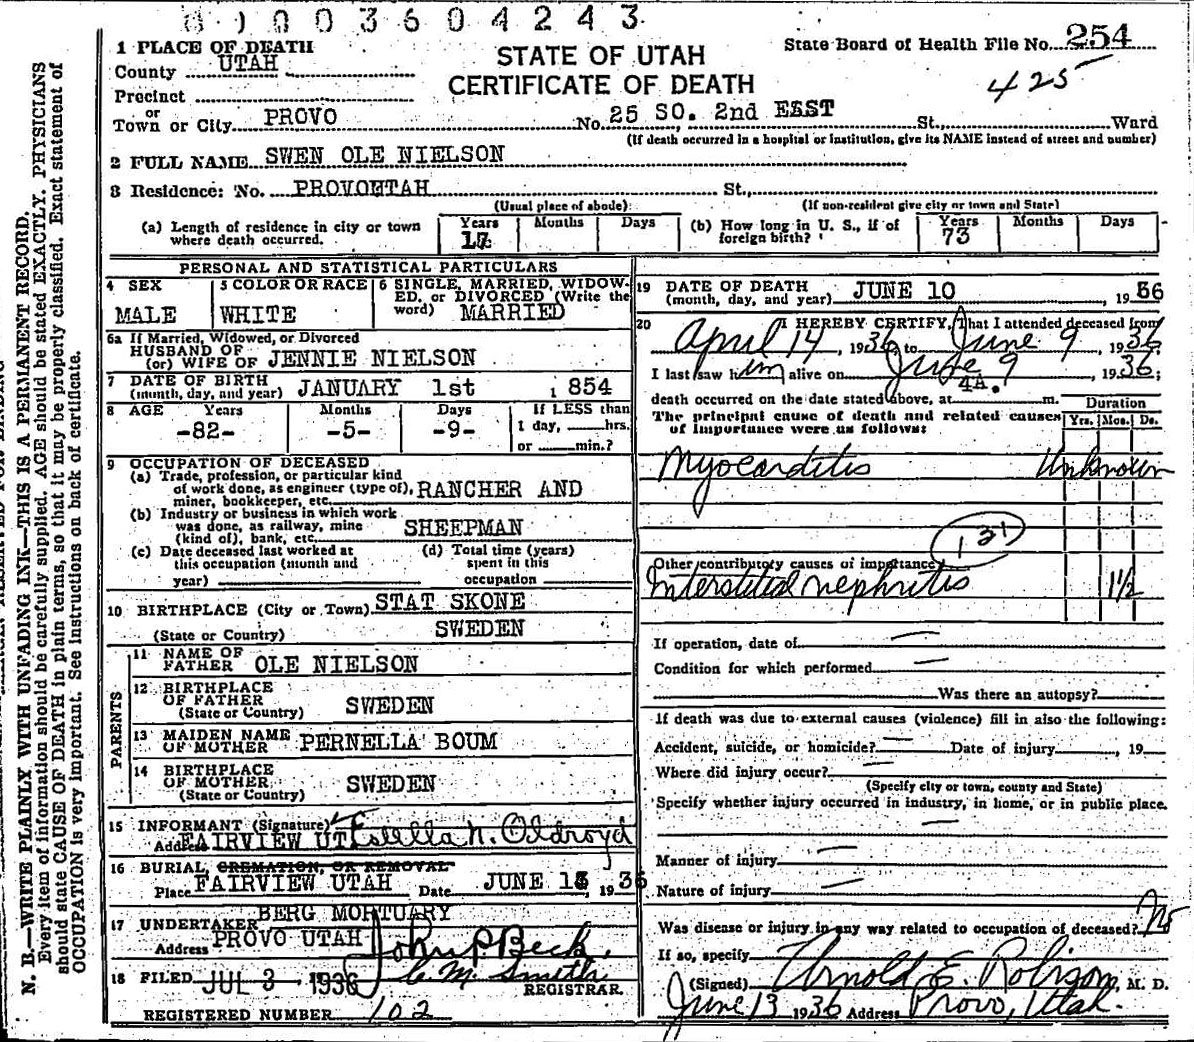 0 0 0 3 6 0 4 2 4 3
STATE OF UTAH
CERTIFICATE OF DEATH
State Board of Health File No. 254
425
1 PLACE OF DEATH
County UTAH
Precinct
or
Town or City PROVO No. 25 SO. 2nd EAST St., Ward
(If death occurred in a hospital or institution, give its NAME instead of street and number)
2 FULL NAME SWEN OLE NIELSON
3 Residence: No. PROVO UTAH St.,
(Usual place of abode) (If non-resident give city or town and State)
(a) Length of residence in city or town where death occurred. Years 17 Months Days
(b) How long in U. S., if of foreign birth? Years 73 Months Days
PERSONAL AND STATISTICAL PARTICULARS
4 SEX MALE
5 COLOR OR RACE WHITE
6 SINGLE, MARRIED, WIDOWED, or DIVORCED (Write the word) MARRIED
6a If Married, Widowed, or Divorced
HUSBAND OF
(or) WIFE OF JENNIE NIELSON
7 DATE OF BIRTH
(month, day, and year) JANUARY 1st 1 854
8 AGE Years Months Days If LESS than
-82- -5- -9- 1 day, hrs.
or min.?
9 OCCUPATION OF DECEASED
(a) Trade, profession, or particular kind
of work done, as engineer (type of),
miner, bookkeeper, etc. RANCHER AND
(b) Industry or business in which work
was done, as railway, mine
(kind of), bank, etc. SHEEPMAN
(c) Date deceased last worked at
this occupation (month and
year)
(d) Total time (years)
spent in this
occupation
10 BIRTHPLACE (City or Town) STAT SKONE
(State or Country) SWEDEN
PARENTS
11 NAME OF
FATHER OLE NIELSON
12 BIRTHPLACE
OF FATHER
(State or Country) SWEDEN
13 MAIDEN NAME
OF MOTHER PERNELLA BOUM
14 BIRTHPLACE
OF MOTHER
(State or Country) SWEDEN
15 INFORMANT (Signature) Estella N. Oldroyd
Address FAIRVIEW UT
16 BURIAL, CREMATION, OR REMOVAL
Place FAIRVIEW UTAH Date JUNE 13 1936
17 UNDERTAKER BERG MORTUARY
Address PROVO UTAH John P. Beck
18 FILED JUL 3 1936 C. M. Smith
REGISTRAR.
REGISTERED NUMBER 102
19 DATE OF DEATH
(month, day, and year) JUNE 10, 1936
20 I HEREBY CERTIFY, That I attended deceased from
April 14, 1936 to June 9, 1936
I last saw him alive on June 9, 1936;
death occurred on the date stated above, at 4A. m.
Duration
The principal cause of death and related causes
of importance were as follows: Yrs. Mos. Ds.
Myocarditis Unknown
131
Other contributory causes of importance
Interstitial nephritis 1 1/2
If operation, date of
Condition for which performed
Was there an autopsy?
If death was due to external causes (violence) fill in also the following:
Accident, suicide, or homicide? Date of injury , 19
Where did injury occur?
(Specify city or town, county and State)
Specify whether injury occurred in industry, in home, or in public place.
Manner of injury
Nature of injury
Was disease or injury in any way related to occupation of deceased? No
If so, specify
(Signed) Arnold E. Robison, M. D.
June 13 1936 Address Provo, Utah.
N. B.—WRITE PLAINLY WITH UNFADING INK—THIS IS A PERMANENT RECORD.
Every item of information should be carefully supplied. AGE should be stated EXACTLY. PHYSICIANS
should state CAUSE OF DEATH in plain terms, so that it may be properly classified. Exact statement of
OCCUPATION is very important. See instructions on back of certificate.